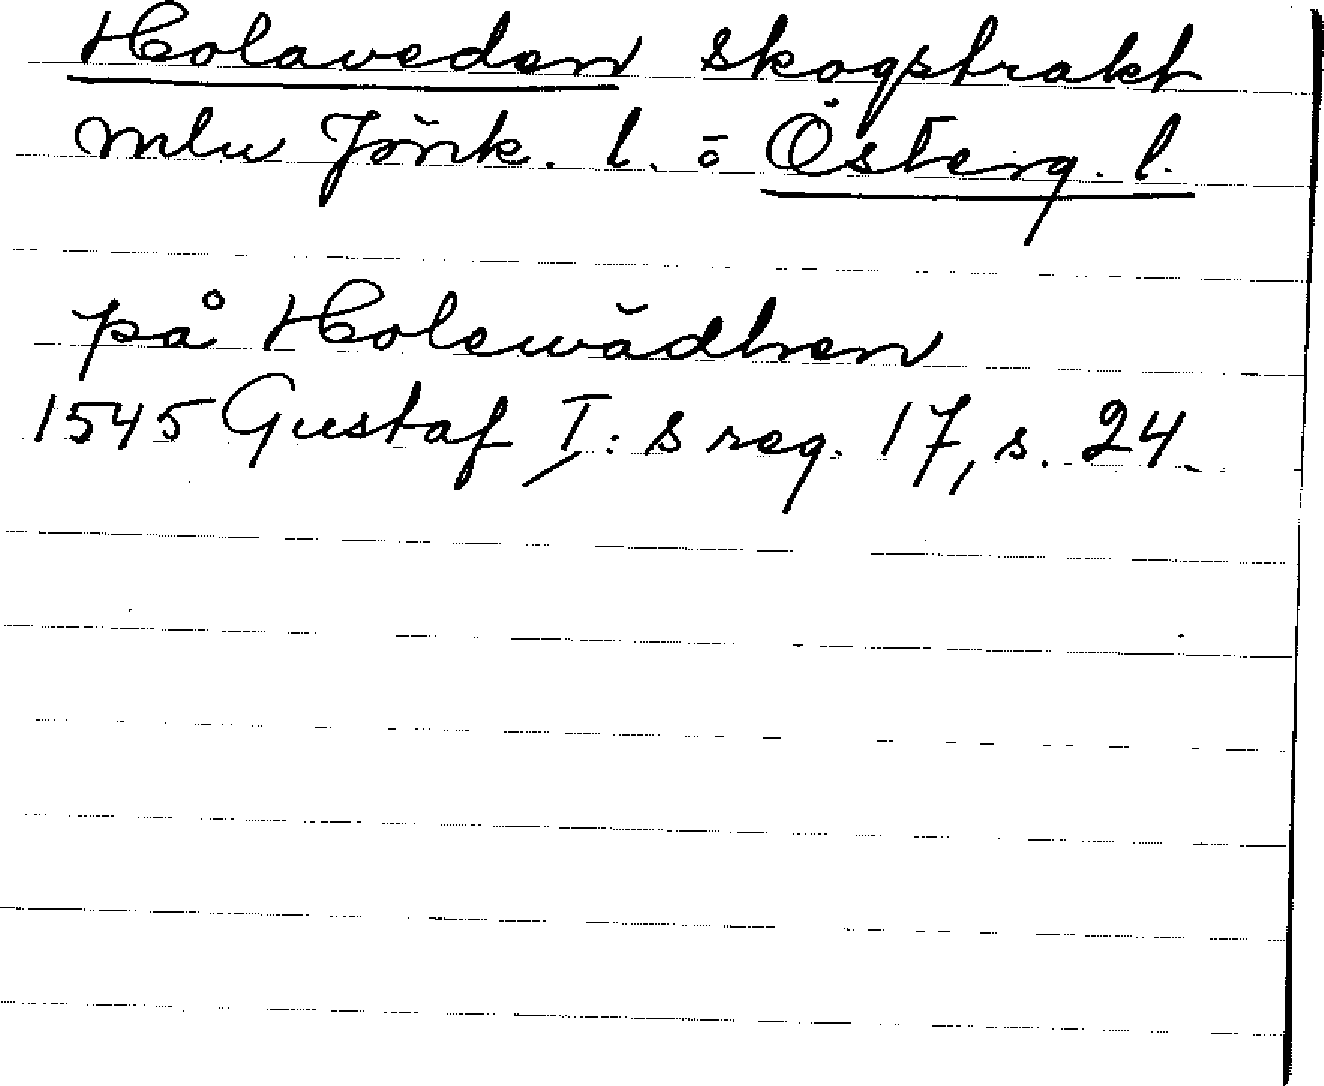 Holaveden skogstrakt
mlu Jönk. l. o Österg. l.
på Holewädhen
1545 Gustaf I:s reg. 17, s. 24.